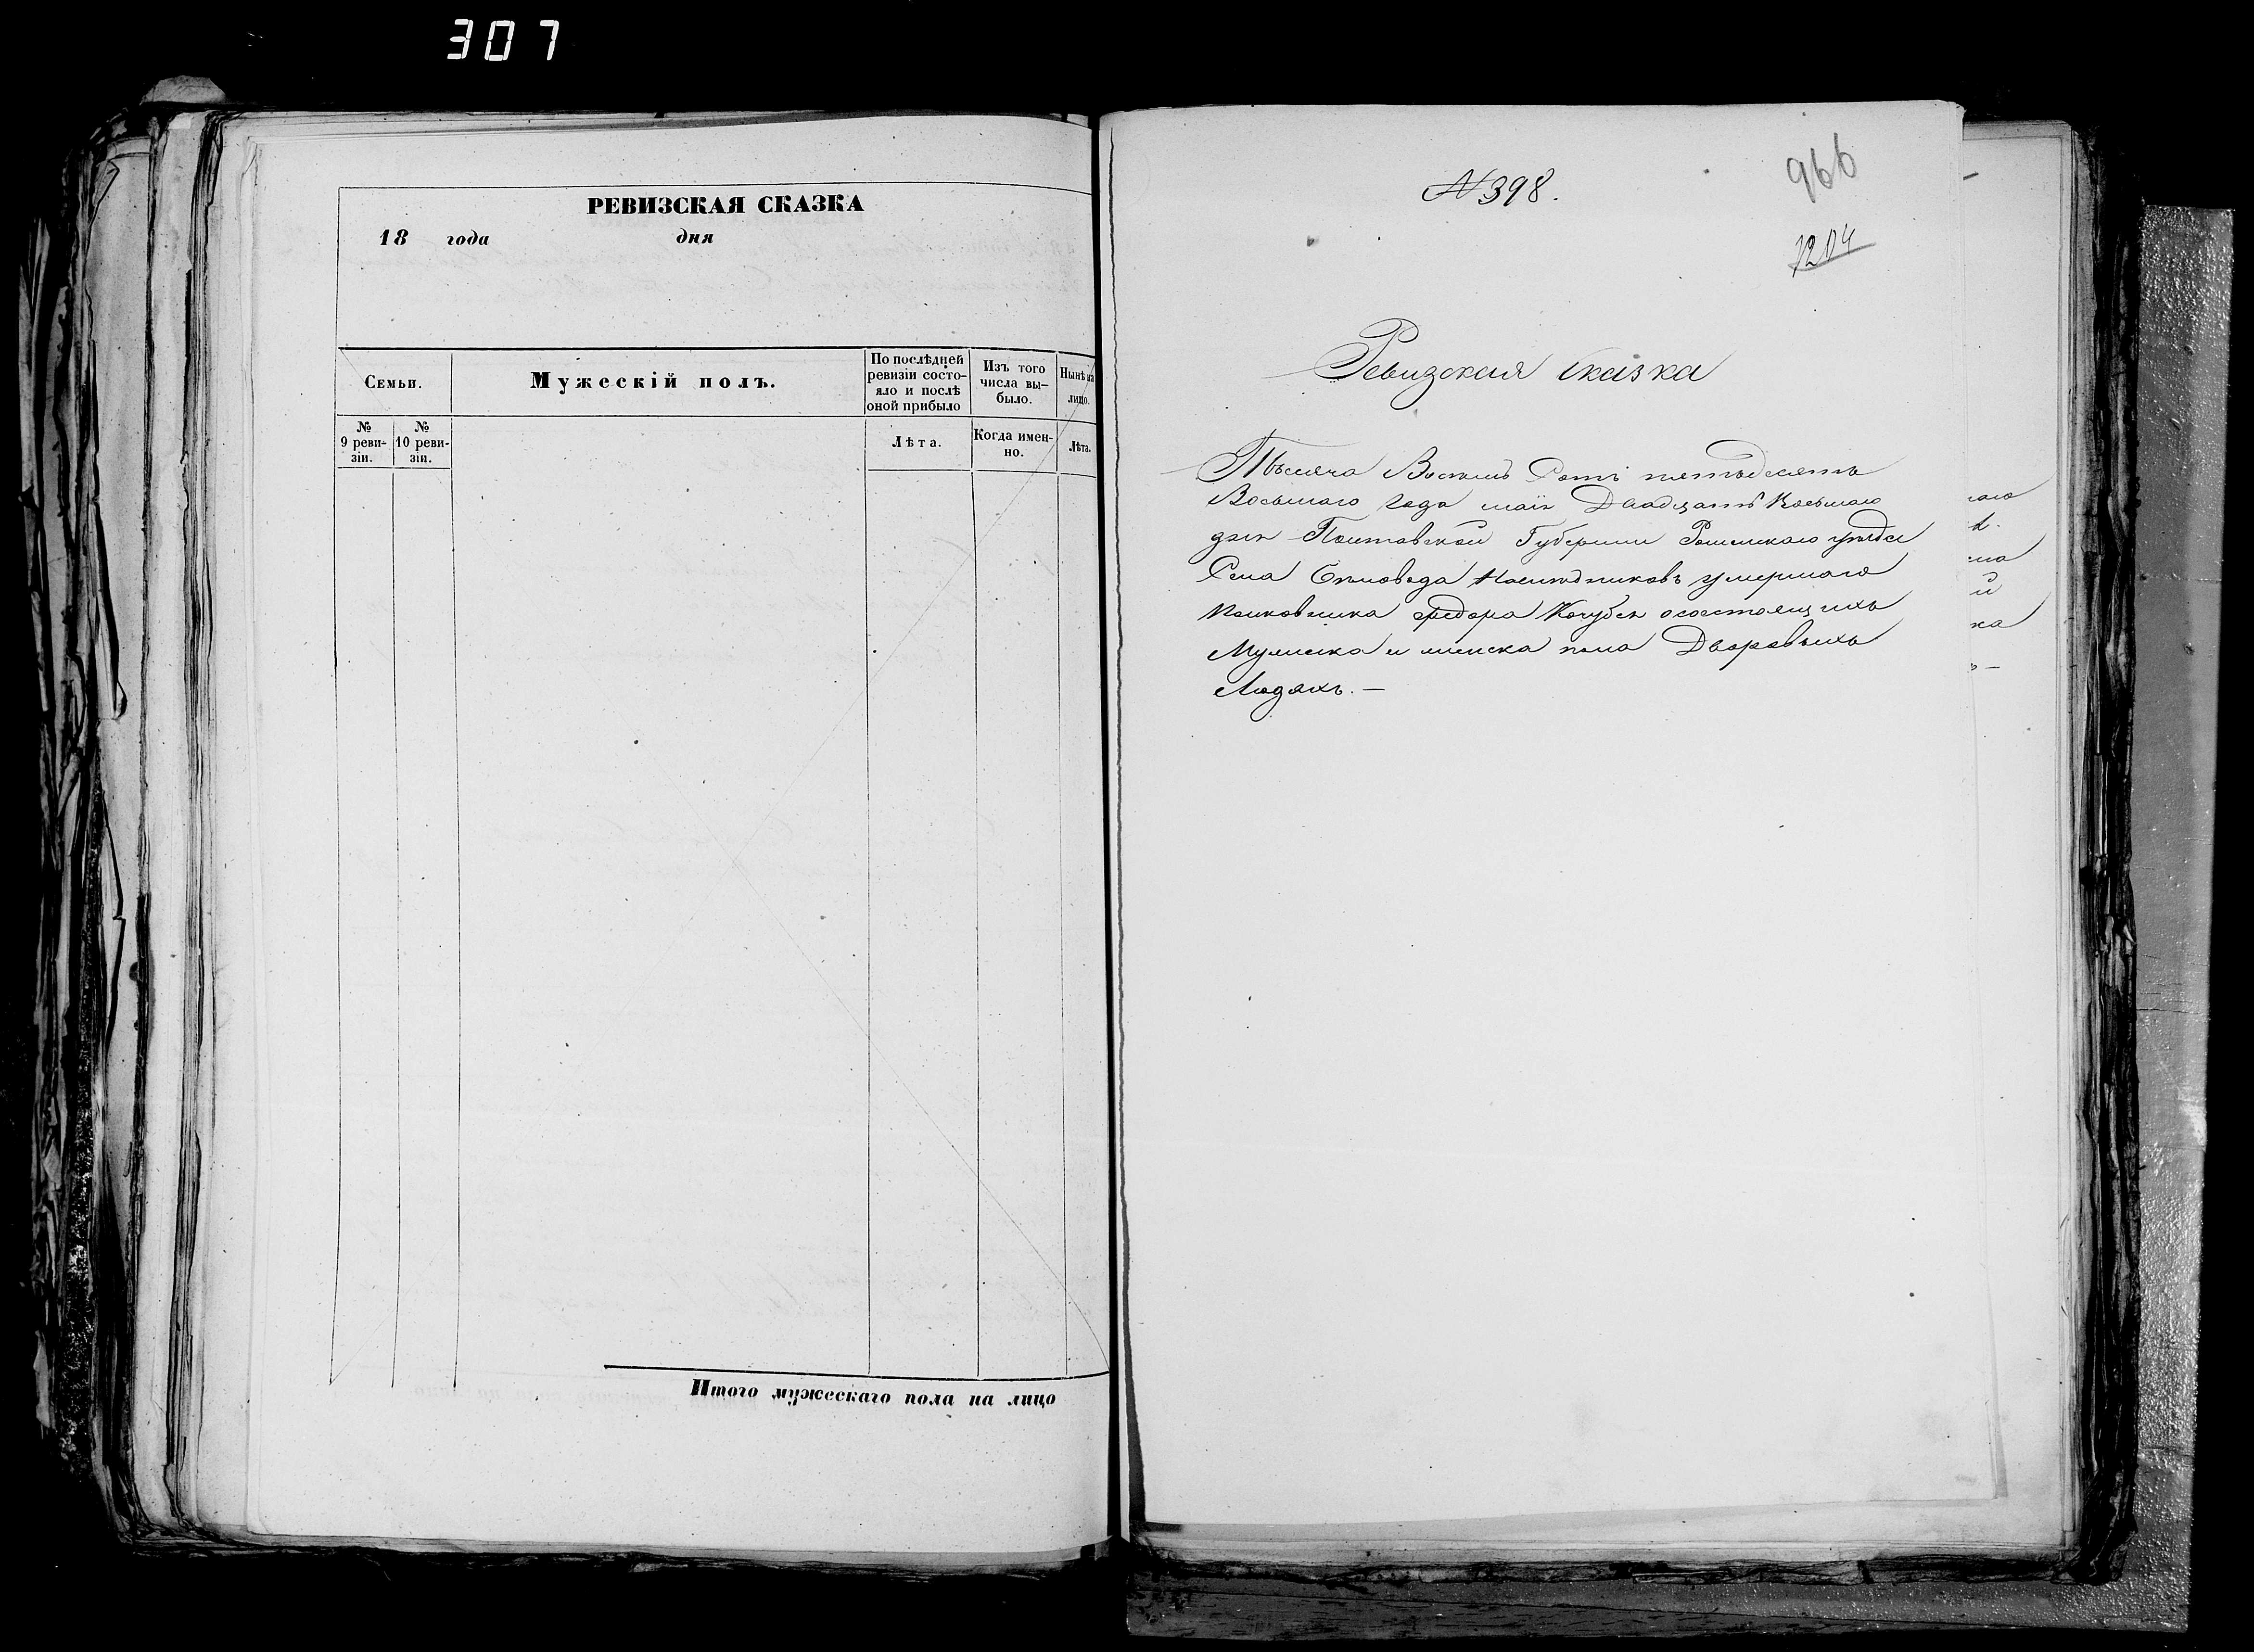 307
РЕВИЗСКАЯ СКАЗКА
18 года дня
Семьи.
Мужескій полъ.
По послѣдней ревизіи состо-
яло и послѣ
оной прибыло
Изъ того
числа вы-
было.
Нынѣ на
лицо.
№
9 реви-
зіи.
№
10 реви-
зіи.
Лѣта.
Когда имен-
но.
Лѣта.
Итого мужескаго пола на лицо
N 398.
966
1204
Ревизская сказка
Тысяча Восемь Сотъ пятьдесятъ
Восьмаго года маія Двадцать Восьмаго
дня Полтавской Губерніи Роменскаго уѣзда
Села Бѣловода Наслѣдниковъ умершаго
Полковника Федора Кочубея о состоящихъ
Мужеска и женска пола Дворовыхъ
Людяхъ. —